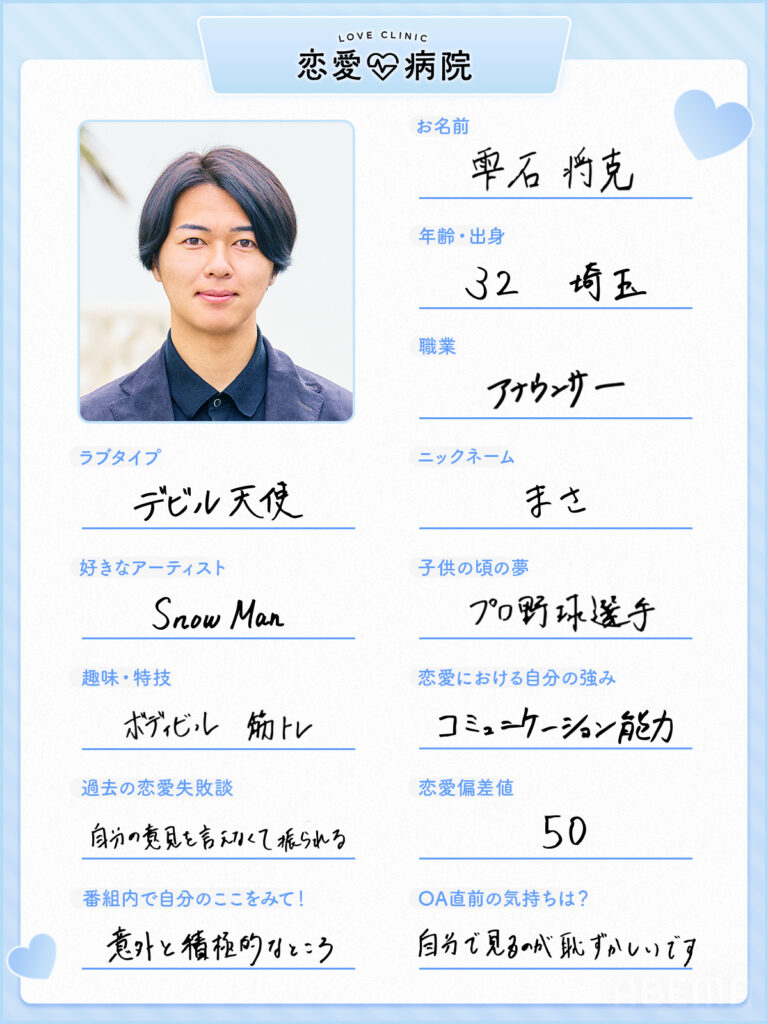 LOVE CLINIC
恋愛病院
お名前
雫石 将克
年齢・出身
32 埼玉
職業
アナウンサー
ラブタイプ
デビル天使
ニックネーム
まさ
好きなアーティスト
Snow Man
子供の頃の夢
プロ野球選手
趣味・特技
ボディビル 筋トレ
恋愛における自分の強み
コミュニケーション能力
過去の恋愛失敗談
自分の意見を言えなくて振られる
恋愛偏差値
50
番組内で自分のここをみて!
意外と積極的なところ
OA直前の気持ちは?
自分で見るのが恥ずかしいです
ABEMA